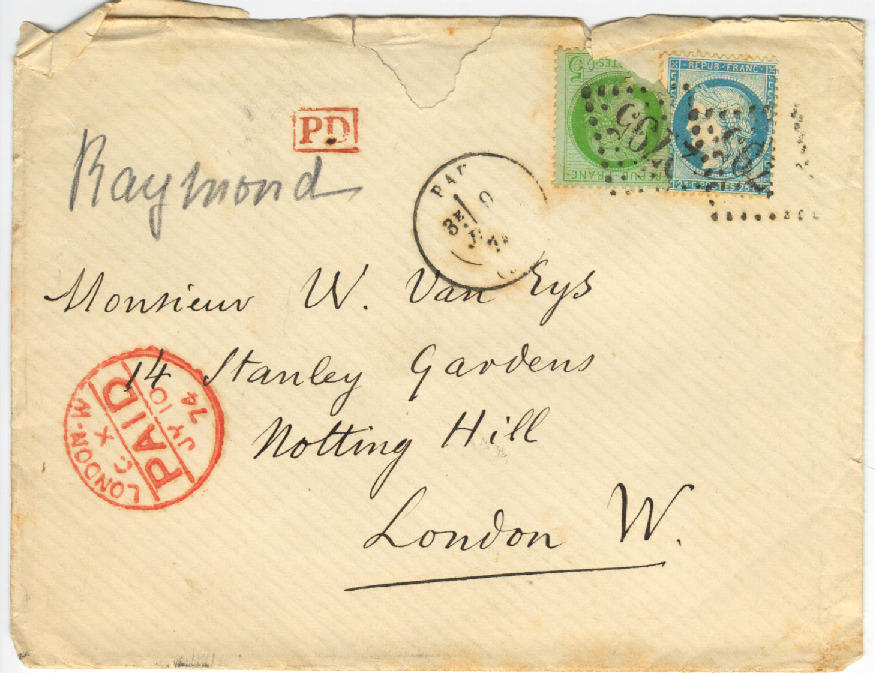 REPUB·FRANC·
PD
Raymond
Monsieur W. Van Eys
14 Stanley Gardens
Notting Hill
London W.
LONDON-W
C X
PAID
JY 10
74